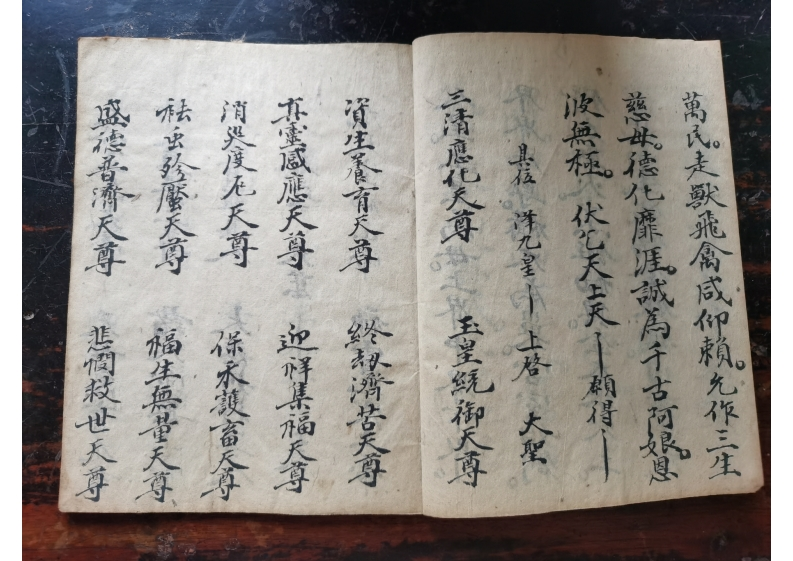 萬民。走獸飛禽咸仰賴。允作三生
慈母。德化靡涯。誠為千古阿娘恩
波無極。伏乞天上天〡願得〡
具位 洋九皇〡上啓 大聖
三清應化天尊 玉皇統御天尊
資生養育天尊 終劫濟苦天尊
真靈感應天尊 迎祥集福天尊
消災度厄天尊 保禾護畜天尊
祛虫殄魘天尊 福生無量天尊
盛德普濟天尊 悲憫救世天尊